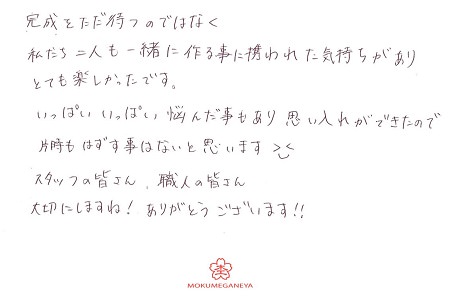 完成をただ待つのではなく
私たち二人も一緒に作る事に携われた気持ちがあり
とても楽しかったです。
いっぱいいっぱい悩んだ事もあり思い入れができたので
片時もはずす事はないと思います
スタッフの皆さん、職人の皆さん
大切にしますね！ありがとうございます!!
MOKUMEGANEYA